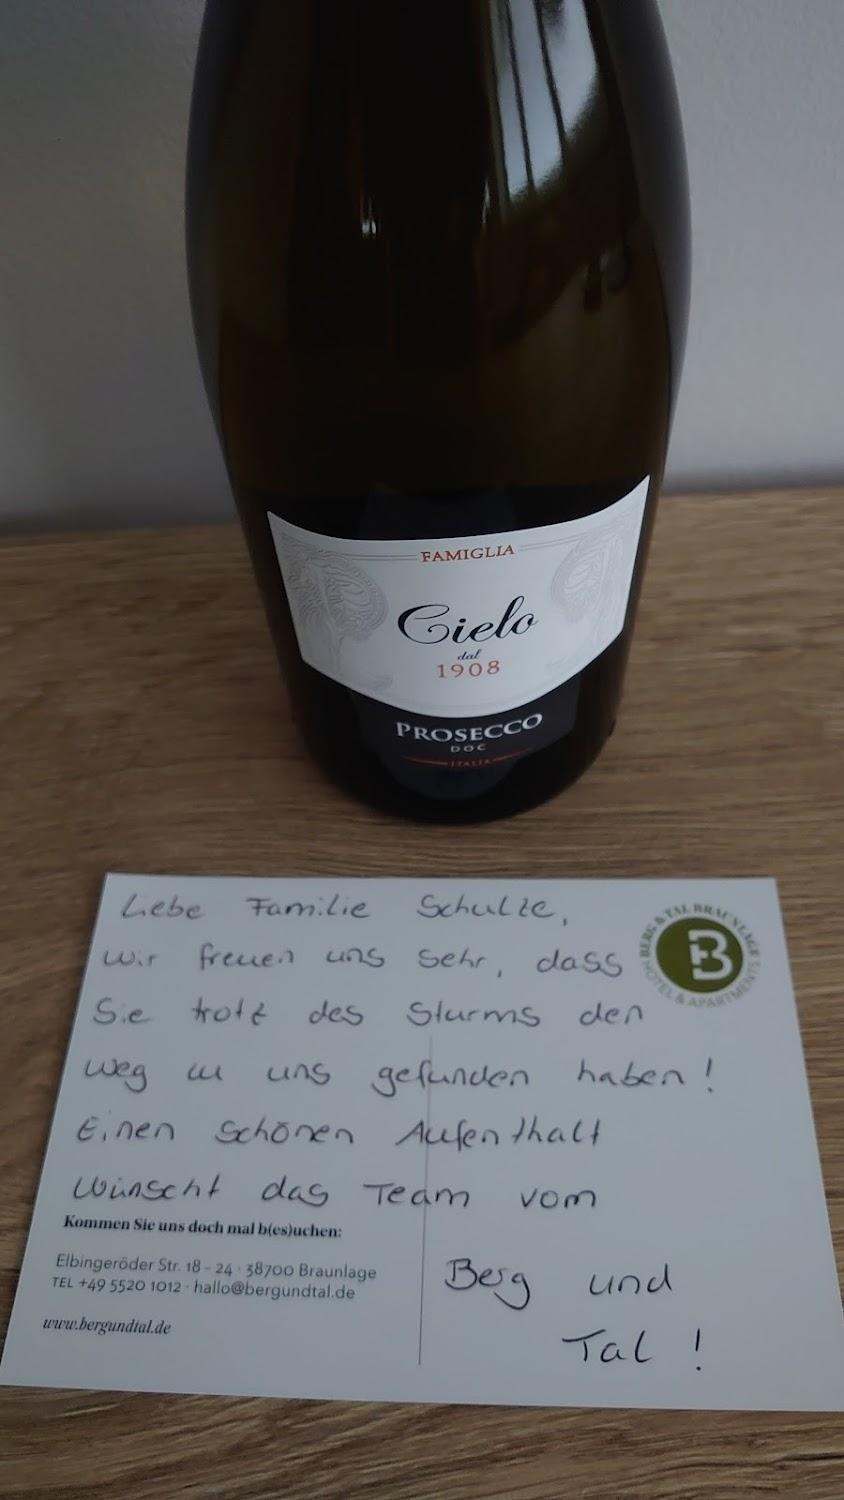 FAMIGLIA
Cielo
dal
1908
PROSECCO
DOC
ITALIA
Liebe Familie Schulze,
BERG & TAL BRAUNLAGE
B
HOTEL & APARTMENTS
wir freuen uns sehr, dass
Sie trotz des Sturms den
Weg zu uns gefunden haben!
Einen schönen Aufenthalt
wünscht das Team vom
Berg und
Tal!
Kommen Sie uns doch mal b(es)uchen:
Elbingeröder Str. 18 - 24 · 38700 Braunlage
TEL +49 5520 1012 · hallo@bergundtal.de
www.bergundtal.de